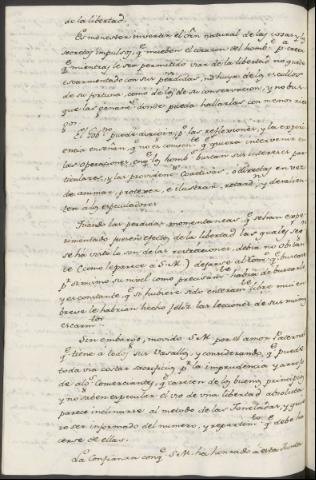 de la libertad.
Es menester invertir el ôrn natural de las cosas, y los
secretos impulsos qe mueben el corazon del hombe pa creer
qe mientras le sea permitido usar de la libertad no quede
escarmentado con sus perdidas, no huya de los escollos
de su fortuna, como de los de su conservacion, y no bus-
que las ganans donde pueda hallarlas con menor ries-
go.
El puede
las reflexiones, y la experi
encia enseñan qe no es comun qe quiera intervenir en
las operaciones, en qe los hombs buscan sus intereses par-
ticulares, y las providens Coactivas, o directas en vez
de animar, proteger, e ilustrar, retardn y desalien-
tan a los especuladores
las perdidas momentaneas qe se han expe-
rimentado pueden ser efectos de la libertad las quales segn
se ha visto lo son de las
debia no obstan-
te (como le parece a S. M.) dejarse al Comô. qe buscase
pr si mismo su nivel como precisamte habria de buscarle
y es constante qe si hubiere sido enteramte libre mui en
breve le habrian hecho feliz las lecciones de sus mismos
escarmtos
Sin embargo, movido S. M. por el amor Paterno
qe tiene a todos sus Vasallos, y considerando qe puede
todavia costar sacrificios pr la imprudencia y arrojo
de alg. Comerciantes qe carecen de los buenos principios
y no saben especular el uso de una libertad absoluta
parece inclinarse al metodo de las Toneladas, y quie-
re ser informado del numero, y repartimto qe debe ha-
cerse de ellas.
La Confianza con qe S. M. ha honrado a esta Junta